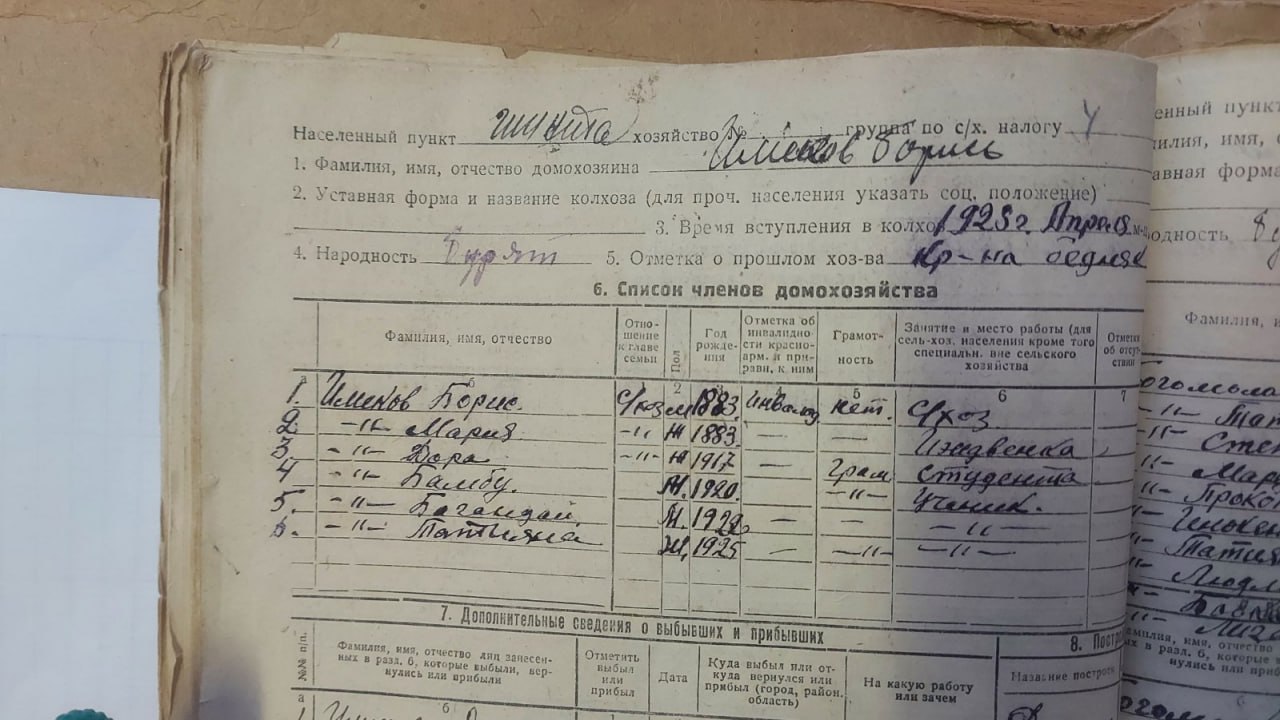 Населенный пункт хозяйство № группа по с/х. налогу
1. Фамилия, имя, отчество домохозяина Именов Борис
2. Уставная форма и название колхоза (для проч. населения указать соц. положение)
3. Время вступления в колхо 1923г Апреля м-
4. Народность Бурят 5. Отметка о прошлом хоз-ва Кр-на бедняк
6. Список членов домохозяйства
Фамилия, имя, отчество
Отно-
шение
к главе
семьи
Пол
Год
рожде-
ния
Отметка об
инвалидно
сти красно-
арм. и при-
равн. к ним
Грамот-
ность
Занятие и место работы (для
сель-хоз. населения кроме того
специальн. вне сельского
хозяйства
Отметка
об отсут-
ствии
б 2 4 5 6 7
1. Именов Борис м 1883 инвалид нет. с/хоз
2. -"- Мария -"- ж 1883 — — Иждвенка
3. -"- Дора -"- ж 1917 — грам. студента
4 -"- Бамбу. ж. 1920. -"- ученик.
5. -"- 192 -"-
6. -"- Татияна ж. 1925 — -"- -"-
7. Дополнительные сведения о выбывших и прибывших
№№ п/п.
Фамилия, имя, отчество лиц занесен-
ных в разл. 6, которые выбыли, вер-
нулись или прибыли
Отметить
выбыл
или
прибыл
Дата
Куда выбыл или от-
куда вернулся или
прибыл (город, район,
область)
На какую работу
или зачем
8. Постр
Название построек
а б
енный пункт
илия, имя, о
авная форма
одность
Фамилия, и
-"- Тат
-"- Сте
-"- Мари
-"- Проко
-"- Татия
-"- Людм
амилия, имя, отчество
ых в разд. 6, которые в
нулись или приб